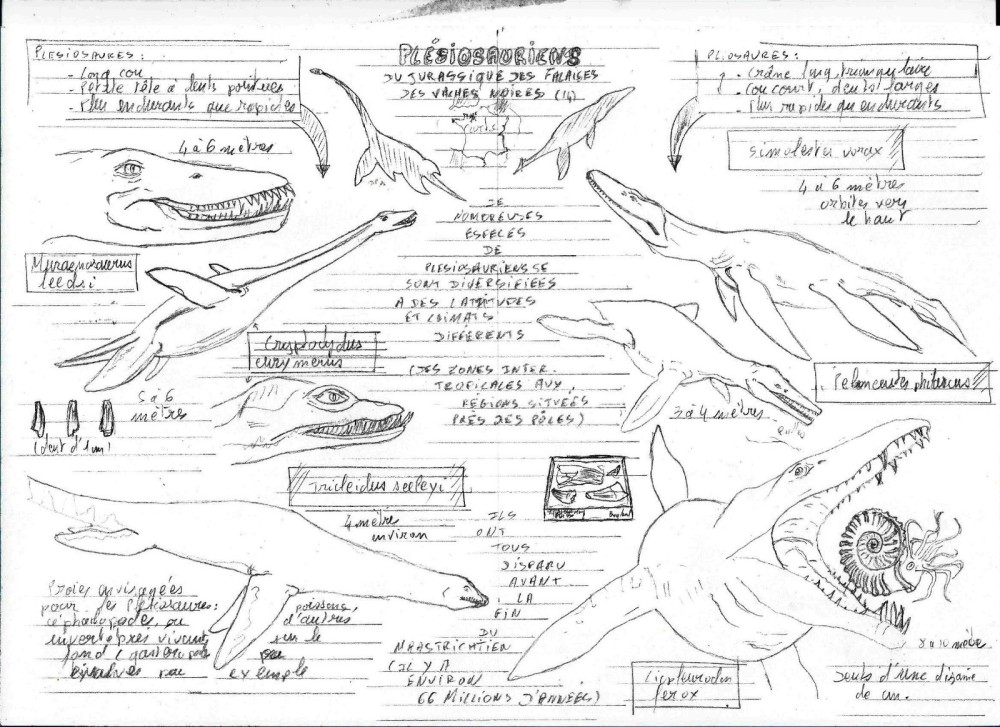 PLÉSIOSAURIENS
DU JURASSIQUE DES FALAISES
DES VACHES NOIRES (14)
PLESIOSAURES :
- Long cou
- Petite tête à dents pointues
- Plus endurants que rapides
PLIOSAURES :
- Crâne long, triangulaire
- Cou court, dents larges
- Plus rapides qu'endurants
4 à 6 mètres
Muraenosaurus
leedsi
Simolestes vorax
4 à 6 mètres
orbites vers
le haut
DE
NOMBREUSES
ESPECES
DE
PLESIOSAURIENS SE
SONT DIVERSIFIEES
A DES LATITUDES
ET CLIMATS
DIFFÉRENTS
(DES ZONES INTER
TROPICALES AUX
RÉGIONS SITUÉES
PRÈS DES PÔLES)
Cryptoclydus
eurymerus
5 à 6
mètres
(dent d'1 cm)
Peloneustes philarcus
3 à 4 mètres
Tricleidus seeleyi
4 mètres
environ
ILS
ONT
TOUS
DISPARU
AVANT
LA
FIN
DU
MAASTRICHTIEN
(IL Y A
ENVIRON
66 MILLIONS D'ANNEES)
Proies envisagées
pour les Plésiosaures :
céphalopodes, ou
invertébrés vivant
fond (gastéropodes
bivalves par
poissons,
d'autres
sur le
exemple
8 à 10 mètres
Liopleurodon
ferox
Dents d'une dizaine
de cm.